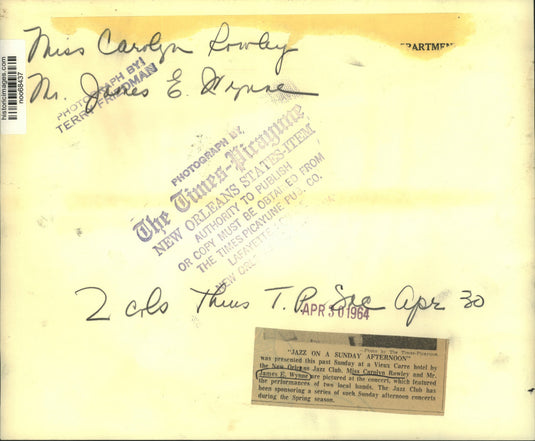 Miss Carolyn Rowley
PARTMEN
historicimages.com
noo68437
PHOTOGRAPH BY:
TERRY FRIEDMAN
Mr. James E. Wynne
PHOTOGRAPH BY
The Times-Picayune
NEW ORLEANS STATES-ITEM
AUTHORITY TO PUBLISH
OR COPY MUST BE OBTAINED FROM
THE TIMES-PICAYUNE PUB. CO.
LAFAYETTE
NEW ORL
2 cols Thurs T.P. Soc Apr 30
APR 30 1964
Photo by The Times-Picayune
"JAZZ ON A SUNDAY AFTERNOON"
was presented this past Sunday at a Vieux Carre hotel by
the New Orleans Jazz Club. Miss Carolyn Rowley and Mr.
James E. Wynne are pictured at the concert, which featured
the performances of two local bands. The Jazz Club has
been sponsoring a series of such Sunday afternoon concerts
during the Spring season.